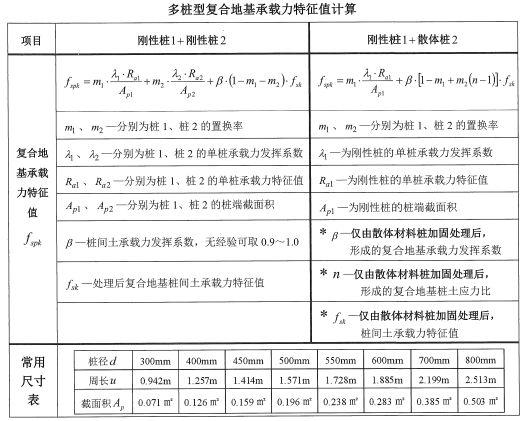 多桩型复合地基承载力特征值计算
项目 刚性桩1+刚性桩2 刚性桩1+散体桩2
复合地基承载力特征值
f_spk
f_spk = m₁·(λ₁·R_a1)/A_p1 + m₂·(λ₂·R_a2)/A_p2 + β·(1-m₁-m₂)·f_sk
f_spk = m₁·(λ₁·R_a1)/A_p1 + β·[1-m₁+m₂(n-1)]·f_sk
m₁、m₂—分别为桩1、桩2的置换率
m₁、m₂—分别为桩1、桩2的置换率
λ₁、λ₂—分别为桩1、桩2的单桩承载力发挥系数
λ₁—为刚性桩的单桩承载力发挥系数
R_a1、R_a2—分别为桩1、桩2的单桩承载力特征值
R_a1—为刚性桩的单桩承载力特征值
A_p1、A_p2—分别为桩1、桩2的桩端截面积
A_p1—为刚性桩的桩端截面积
β—桩间土承载力发挥系数，无经验可取0.9~1.0
* β—仅由散体材料桩加固处理后，
形成的复合地基承载力发挥系数
f_sk—处理后复合地基桩间土承载力特征值
* n—仅由散体材料桩加固处理后，
形成的复合地基桩土应力比
* f_sk—仅由散体材料桩加固处理后，
桩间土承载力特征值
常用
尺寸
表
桩径d 300mm 400mm 450mm 500mm 550mm 600mm 700mm 800mm
周长u 0.942m 1.257m 1.414m 1.571m 1.728m 1.885m 2.199m 2.513m
截面积A_p 0.071㎡ 0.126㎡ 0.159㎡ 0.196㎡ 0.238㎡ 0.283㎡ 0.385㎡ 0.503㎡